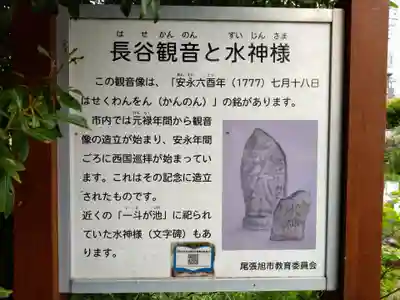 は せ かん のん すい じん さま
長谷観音と水神様
この観音像は、「安永六酉年（1777）七月十八日
はせくわんをん（かんのん）」の銘があります。
市内では元禄年間から観音
像の造立が始まり、安永年間
ごろに西国巡拝が始まってい
ます。これはその記念に造立
されたものです。
近くの「一斗が池」に祀られ
ていた水神様（文字碑）もあ
ります。
尾張旭市教育委員会